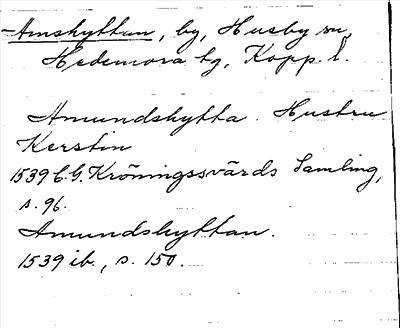 Amshyttan, by, Husby sn,
Hedemora tg, Kopp. l.
Amundshytta. Hustru
Kerstin
1539 C. G. Kröningssvärds Samling,
s. 96.
Amundshyttan.
1539 ib., s. 150.